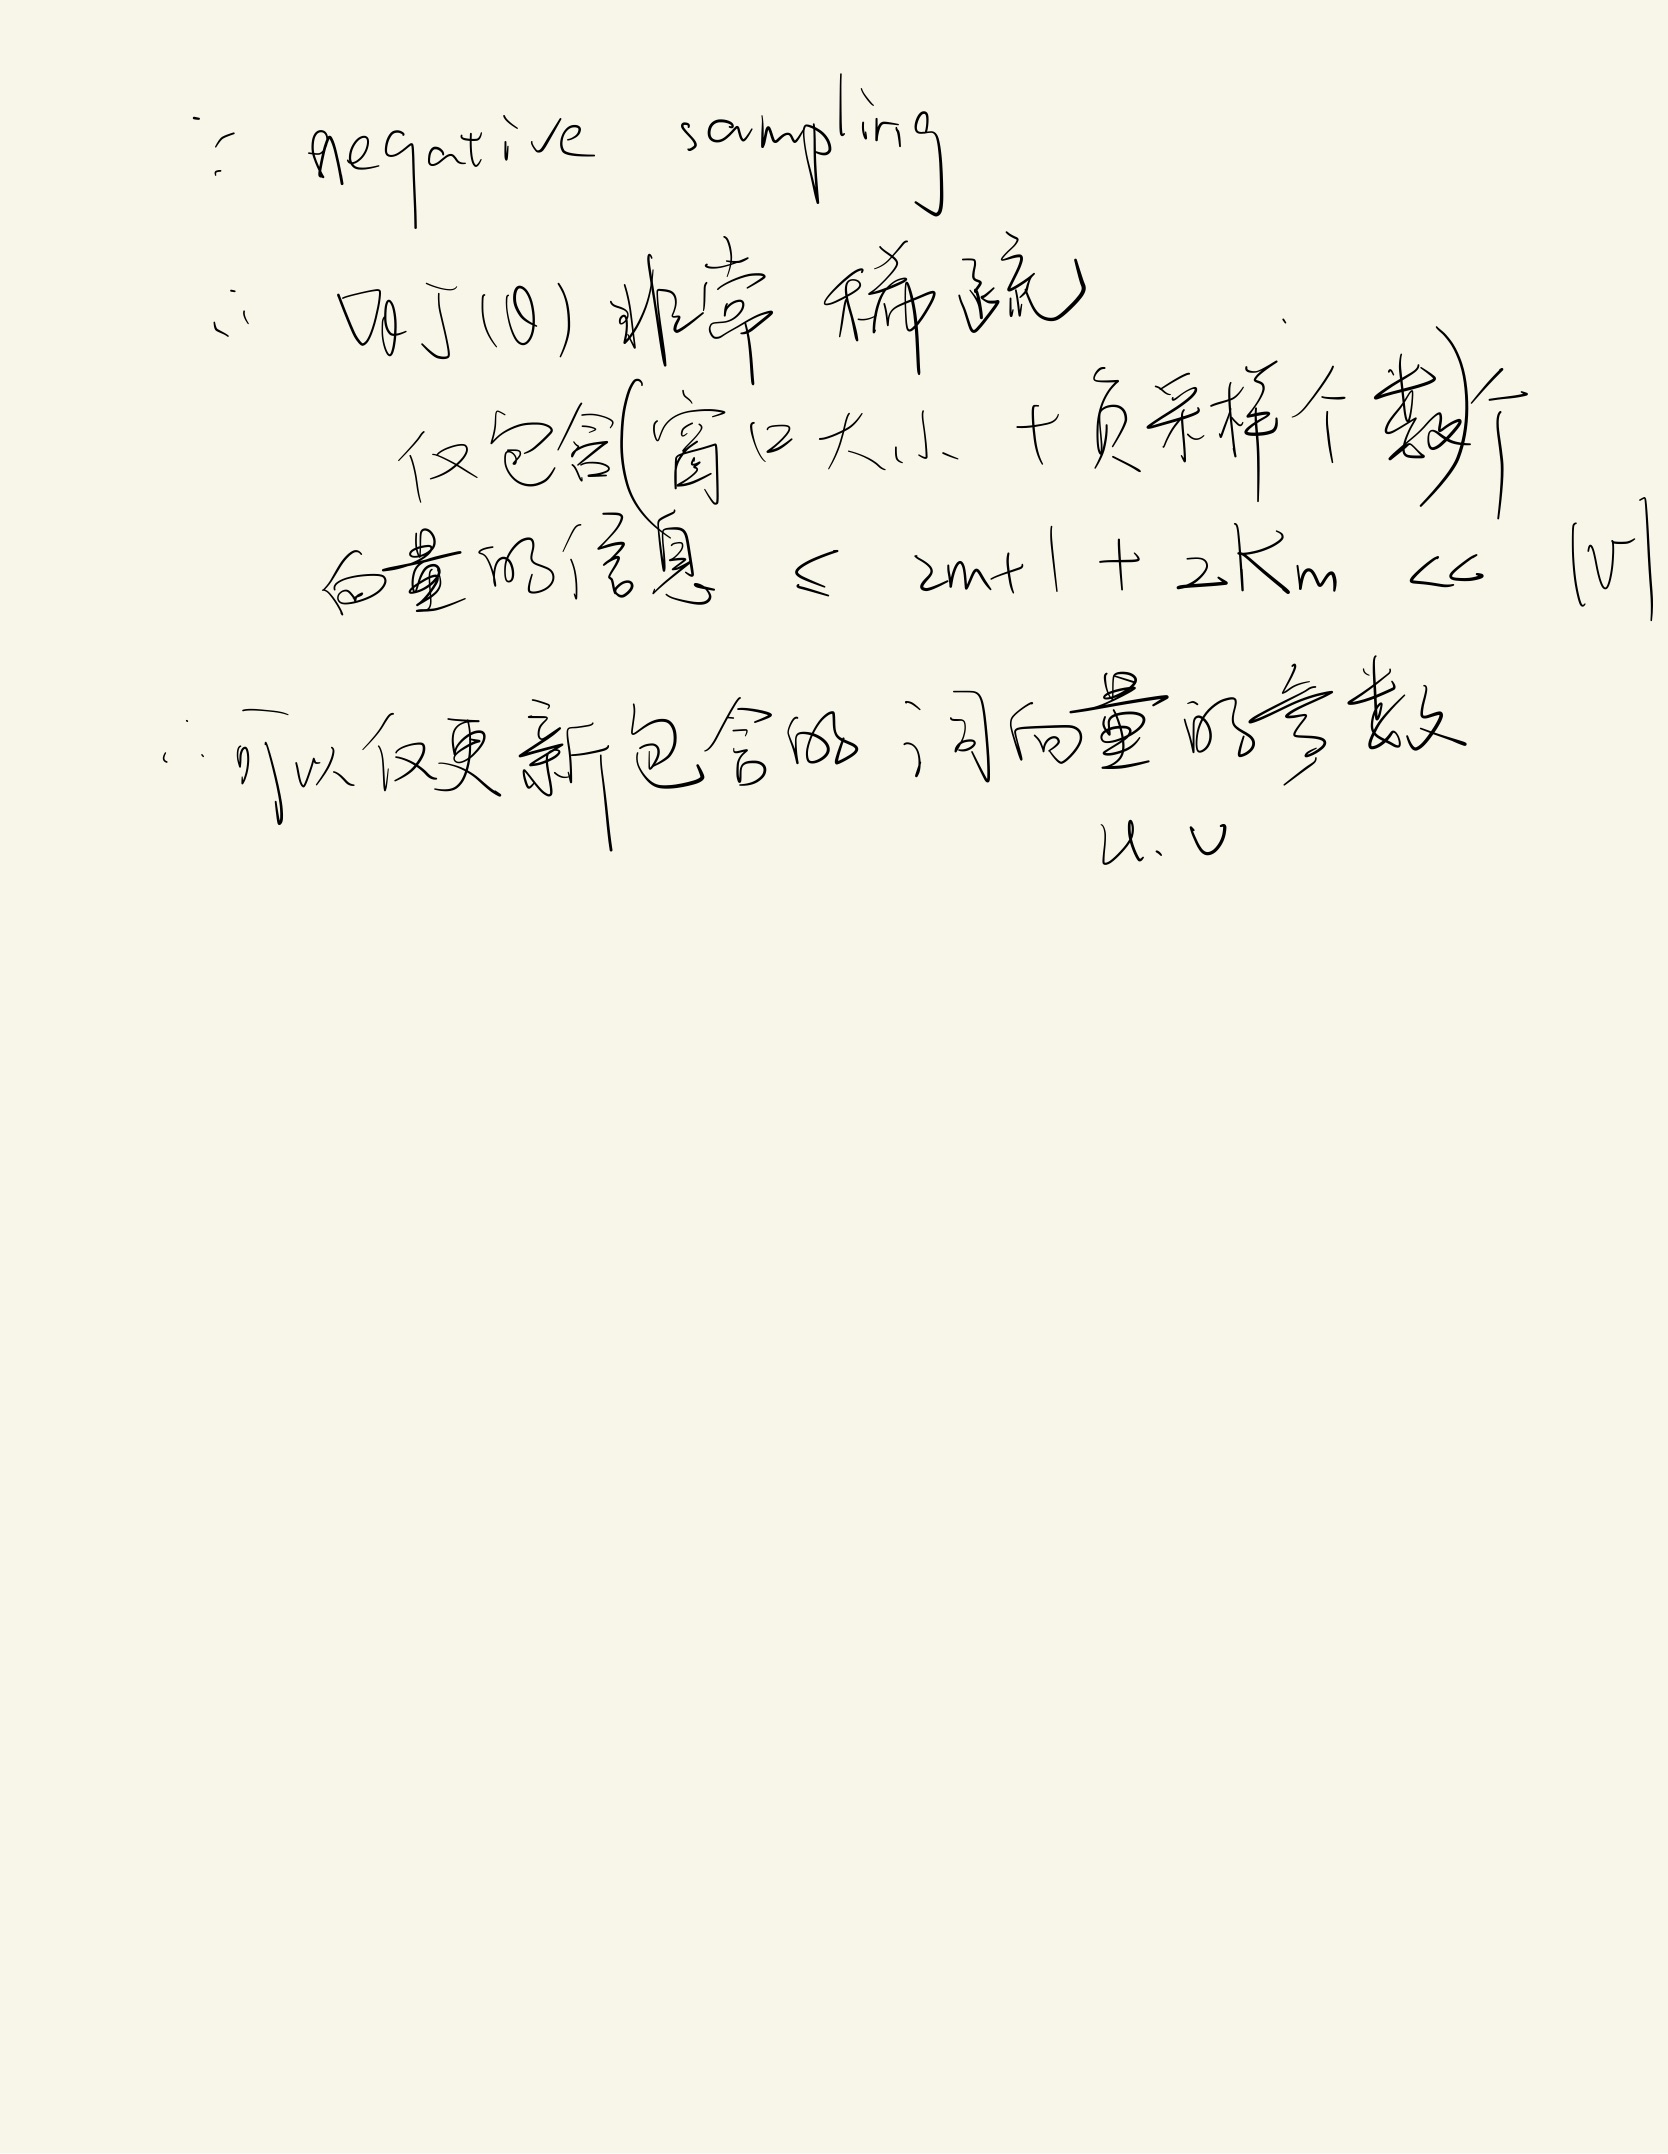 ∵ negative sampling
∴ ∇θJ(θ)非常 稀疏
仅包含(窗口大小 + 负采样个数)个
向量的信息 ≤ 2m+1 + 2Km << |V|
∴可以仅更新包含的 词向量的参数
u. v